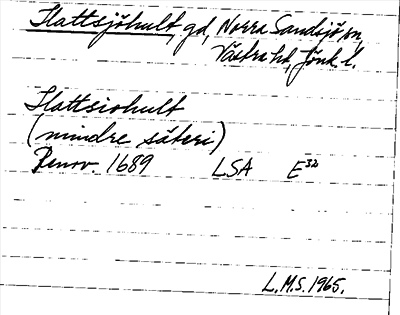 Hattsjöhult, gd, Norra Sandsjö sn,
Västra hd, Jönk. l.
Hattsiohult
(mindre säteri)
Renov. 1689 LSA E³²
L.M.S. 1965.